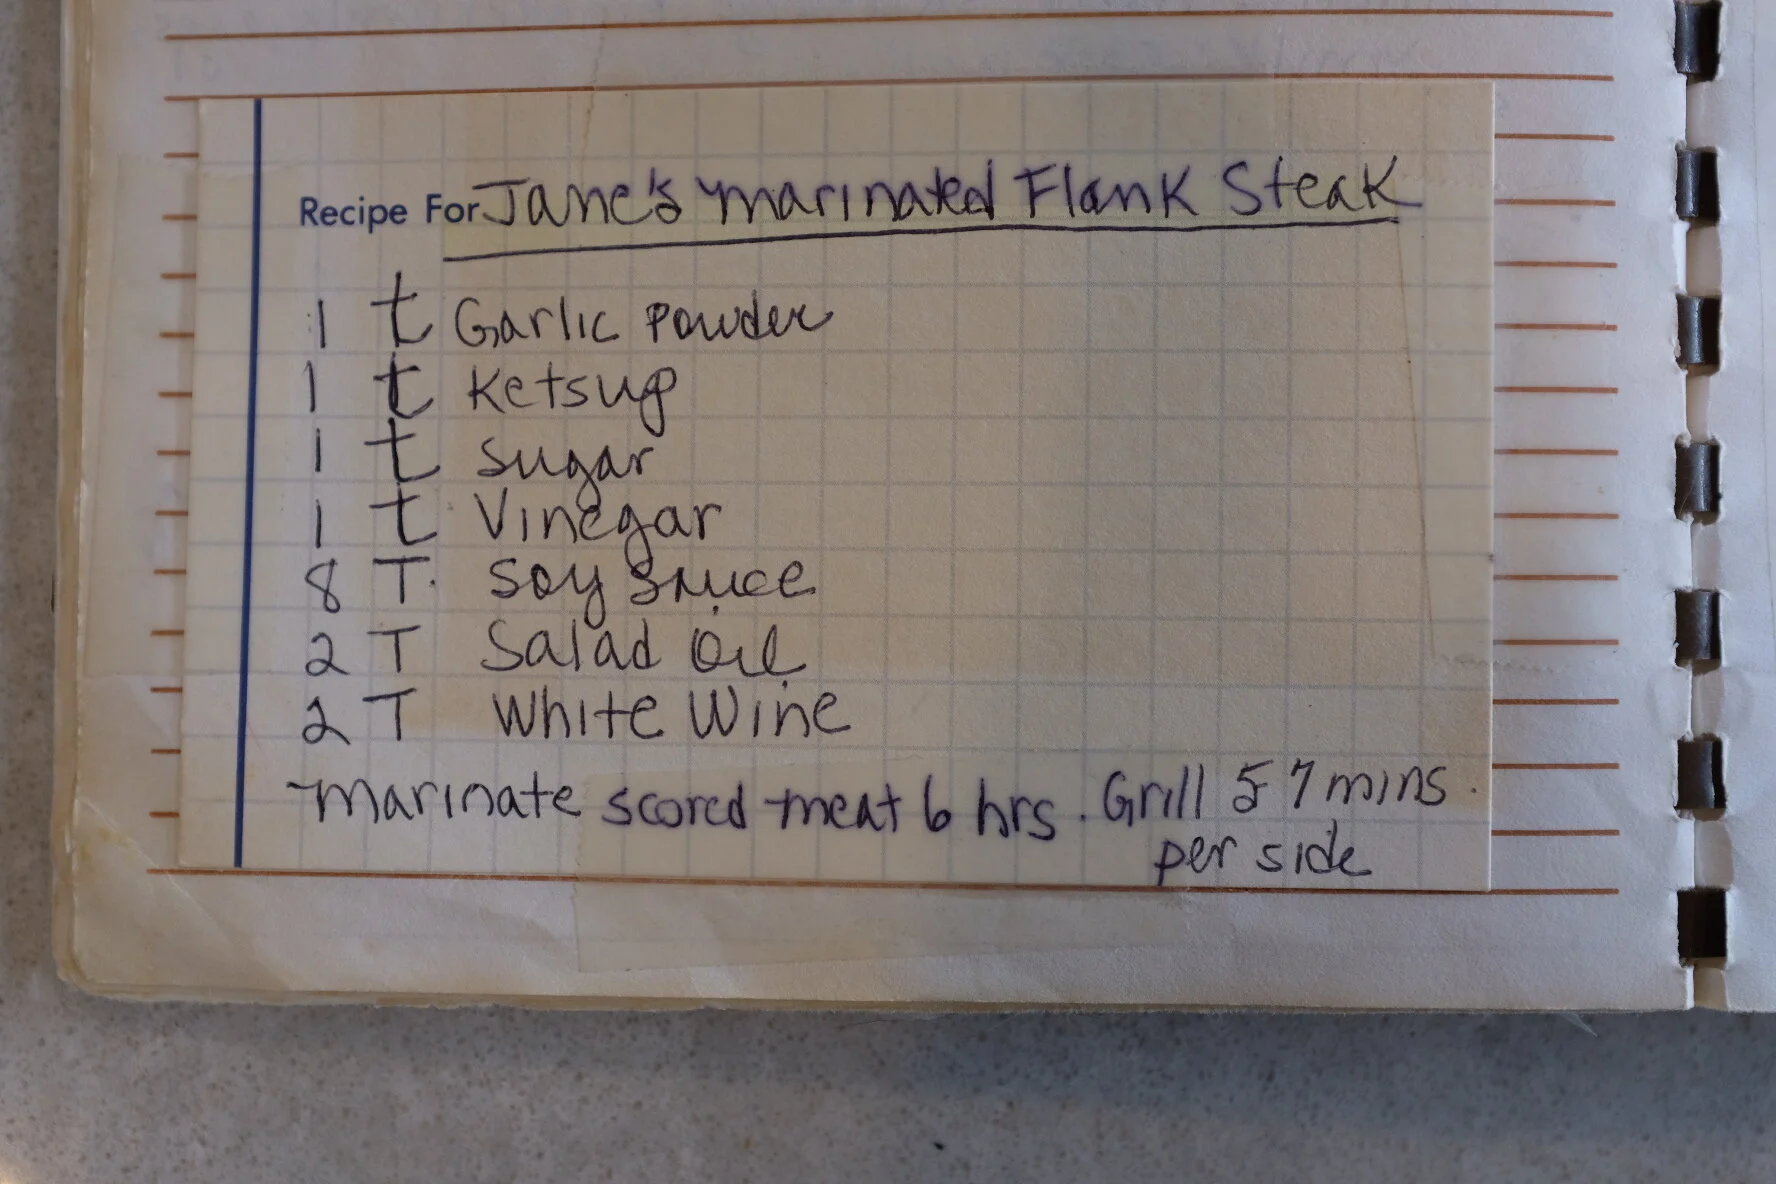 Recipe For Jane's Marinated Flank Steak
1 t Garlic Powder
1 t Ketsup
1 t Sugar
1 t Vinegar
8 T. Soy Sauce
2 T Salad Oil
2 T White Wine
Marinate scored meat 6 hrs. Grill 5 7 mins.
per side